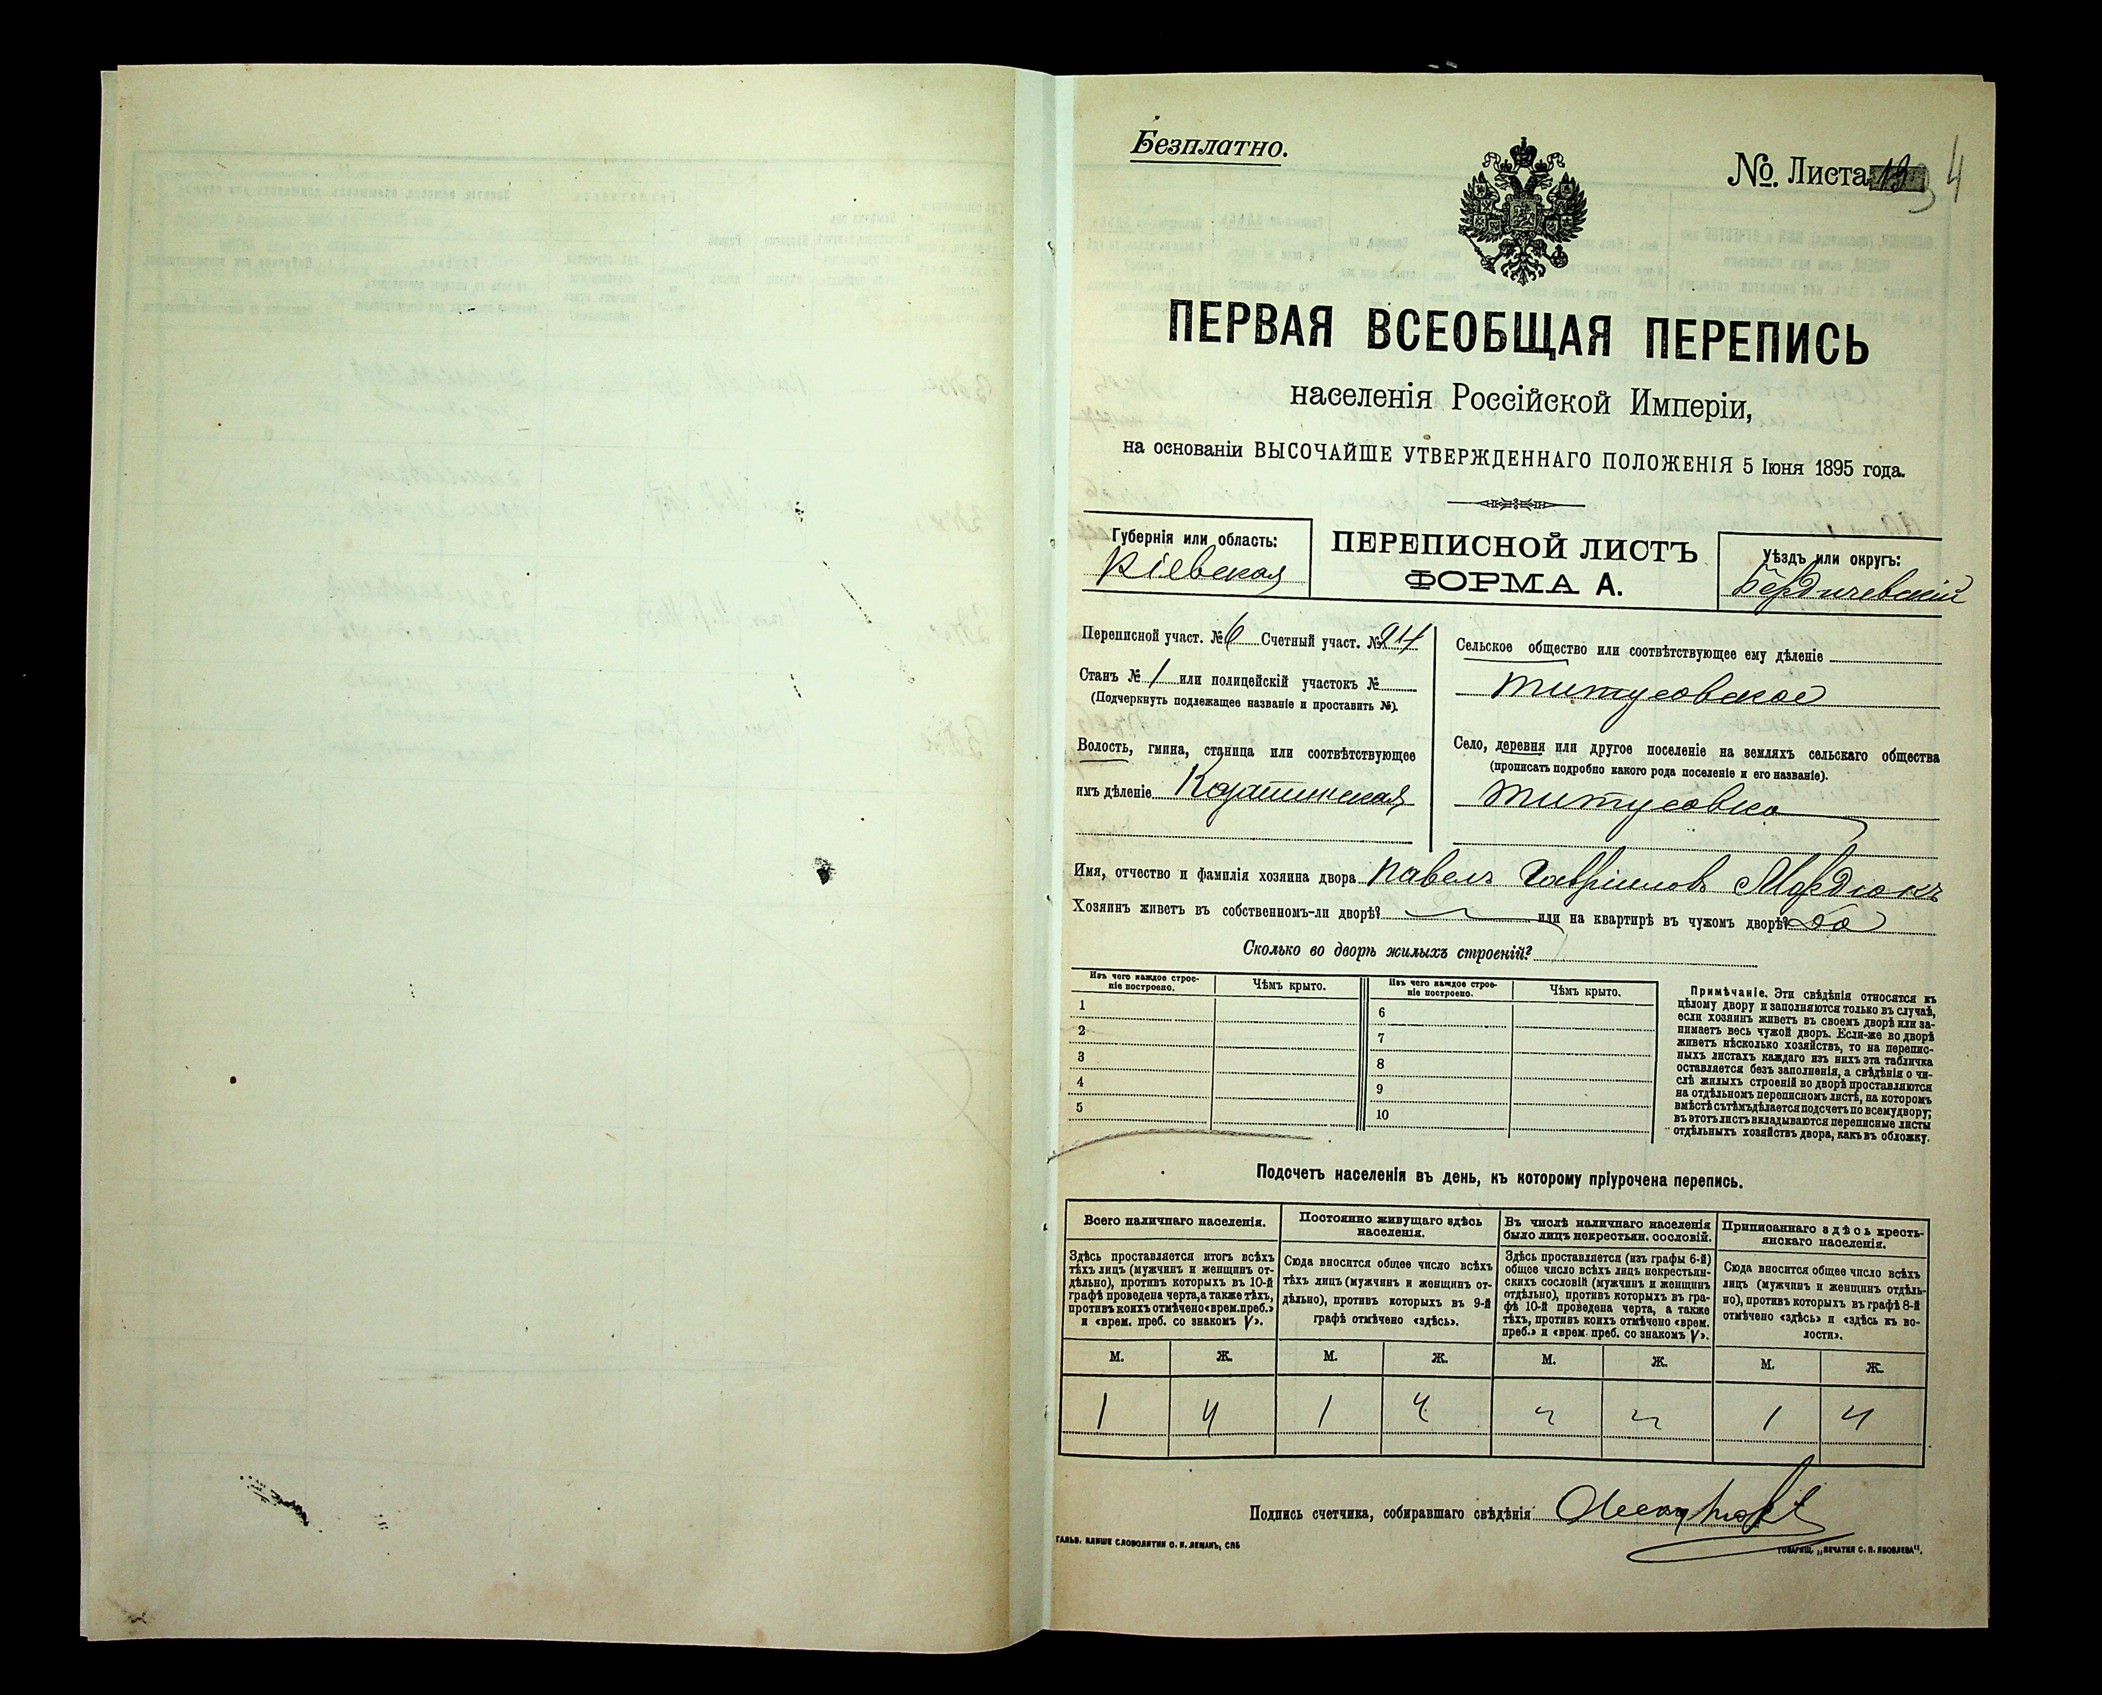 Безплатно.
№. Листа 13 4
ПЕРВАЯ ВСЕОБЩАЯ ПЕРЕПИСЬ
населенія Россійской Имперіи,
на основаніи ВЫСОЧАЙШЕ УТВЕРЖДЕННАГО ПОЛОЖЕНІЯ 5 Іюня 1895 года.
Губернія или область:
Кіевская
ПЕРЕПИСНОЙ ЛИСТЪ
ФОРМА А.
Уѣздъ или округъ:
Бердичевскій
Переписной участ. № 6 Счетный участ. №
Станъ № 1 или полицейскій участокъ №
(Подчеркнуть подлежащее названіе и проставить №).
Волость, гмина, станица или соотвѣтствующее
имъ дѣленіе Козатинская
Сельское общество или соотвѣтствующее ему дѣленіе
Титусовское
Село, деревня или другое поселеніе на земляхъ сельскаго общества
(прописать подробно какого рода поселеніе и его названіе).
Титусовка
Имя, отчество и фамилія хозяина двора Павелъ Гавріиловъ Мордюкъ
Хозяинъ живетъ въ собственномъ-ли дворѣ? или на квартирѣ въ чужомъ дворѣ? да
Сколько во дворѣ жилыхъ строеній?
Изъ чего каждое строе-
ніе построено.
Чѣмъ крыто.
Изъ чего каждое строе-
ніе построено.
Чѣмъ крыто.
1
2
3
4
5
6
7
8
9
10
Примѣчаніе. Эти свѣдѣнія относятся къ
цѣлому двору и заполняются только въ случаѣ,
если хозяинъ живетъ въ своемъ дворѣ или за-
нимаетъ весь чужой дворъ. Если-же во дворѣ
живетъ нѣсколько хозяйствъ, то на перепис-
ныхъ листахъ каждаго изъ нихъ эта табличка
оставляется безъ заполненія, а свѣдѣнія о чи-
слѣ жилыхъ строеній во дворѣ проставляются
на отдѣльномъ переписномъ листѣ, на которомъ
вмѣстѣ съ тѣмъ дѣлается подсчетъ по всему двору;
въ этотъ листъ вкладываются переписные листы
отдѣльныхъ хозяйствъ двора, какъ въ обложку.
Подсчетъ населенія въ день, къ которому пріурочена перепись.
Всего наличнаго населенія.
Здѣсь проставляется итогъ всѣхъ
тѣхъ лицъ (мужчинъ и женщинъ от-
дѣльно), противъ которыхъ въ 10-й
графѣ проведена черта, а также тѣхъ,
противъ коихъ отмѣчено «врем. преб.»
и «врем. преб. со знакомъ V».
Постоянно живущаго здѣсь
населенія.
Сюда вносится общее число всѣхъ
тѣхъ лицъ (мужчинъ и женщинъ от-
дѣльно), противъ которыхъ въ 9-й
графѣ отмѣчено «здѣсь».
Въ числѣ наличнаго населенія
было лицъ некрестьян. сословій.
Здѣсь проставляется (изъ графы 6-й)
общее число всѣхъ лицъ некрестьян-
скихъ сословій (мужчинъ и женщинъ
отдѣльно), противъ которыхъ въ гра-
фѣ 10-й проведена черта, а также
тѣхъ, противъ коихъ отмѣчено «врем.
преб.» и «врем. преб. со знакомъ V».
Приписаннаго здѣсь кресть-
янскаго населенія.
Сюда вносится общее число всѣхъ
лицъ (мужчинъ и женщинъ отдѣль-
но), противъ которыхъ въ графѣ 8-й
отмѣчено «здѣсь» и «здѣсь къ во-
лости».
М. Ж. М. Ж. М. Ж. М. Ж.
1 4 1 4 " " 1 4
Подпись счетчика, собиравшаго свѣдѣнія
ГАЛЬВ. КЛИШЕ СЛОВОЛИТНИ О. И. ЛЕМАНЪ, СПБ
ТОВАРИЩ. „ПЕЧАТНЯ С. П. ЯКОВЛЕВА".